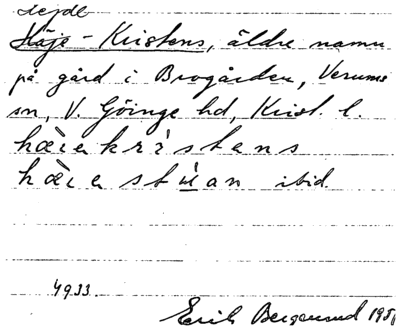 Hejde
Häje-Kristens, äldre namn
på gård i Brogården, Verums
sn, V. Göinge hd, Krist. l.
hæ̀ıekrı̀stens
hæ̀ıe stu̍an ibid.
4933.
Erik Bergenund 1951